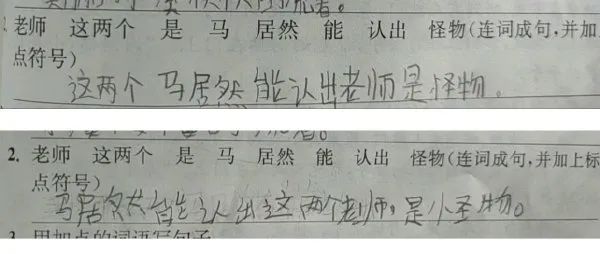 老师 这两个 是 马 居然 能 认出 怪物(连词成句,并加
点符号)
这两个 马居然能认出老师是怪物。
2. 老师 这两个 是 马 居然 能 认出 怪物(连词成句,并加上标
点符号)
马居然能认出这两个老师,是怪物。
3. 用加点的词语写句子